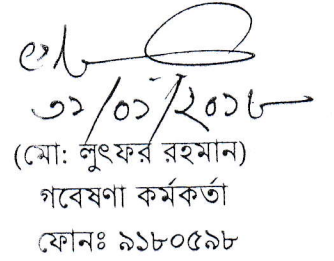 ৩১/০১/২০১৮
(মো: লুৎফর রহমান)
গবেষণা কর্মকর্তা
ফোনঃ ৯১৮০৫৯৮